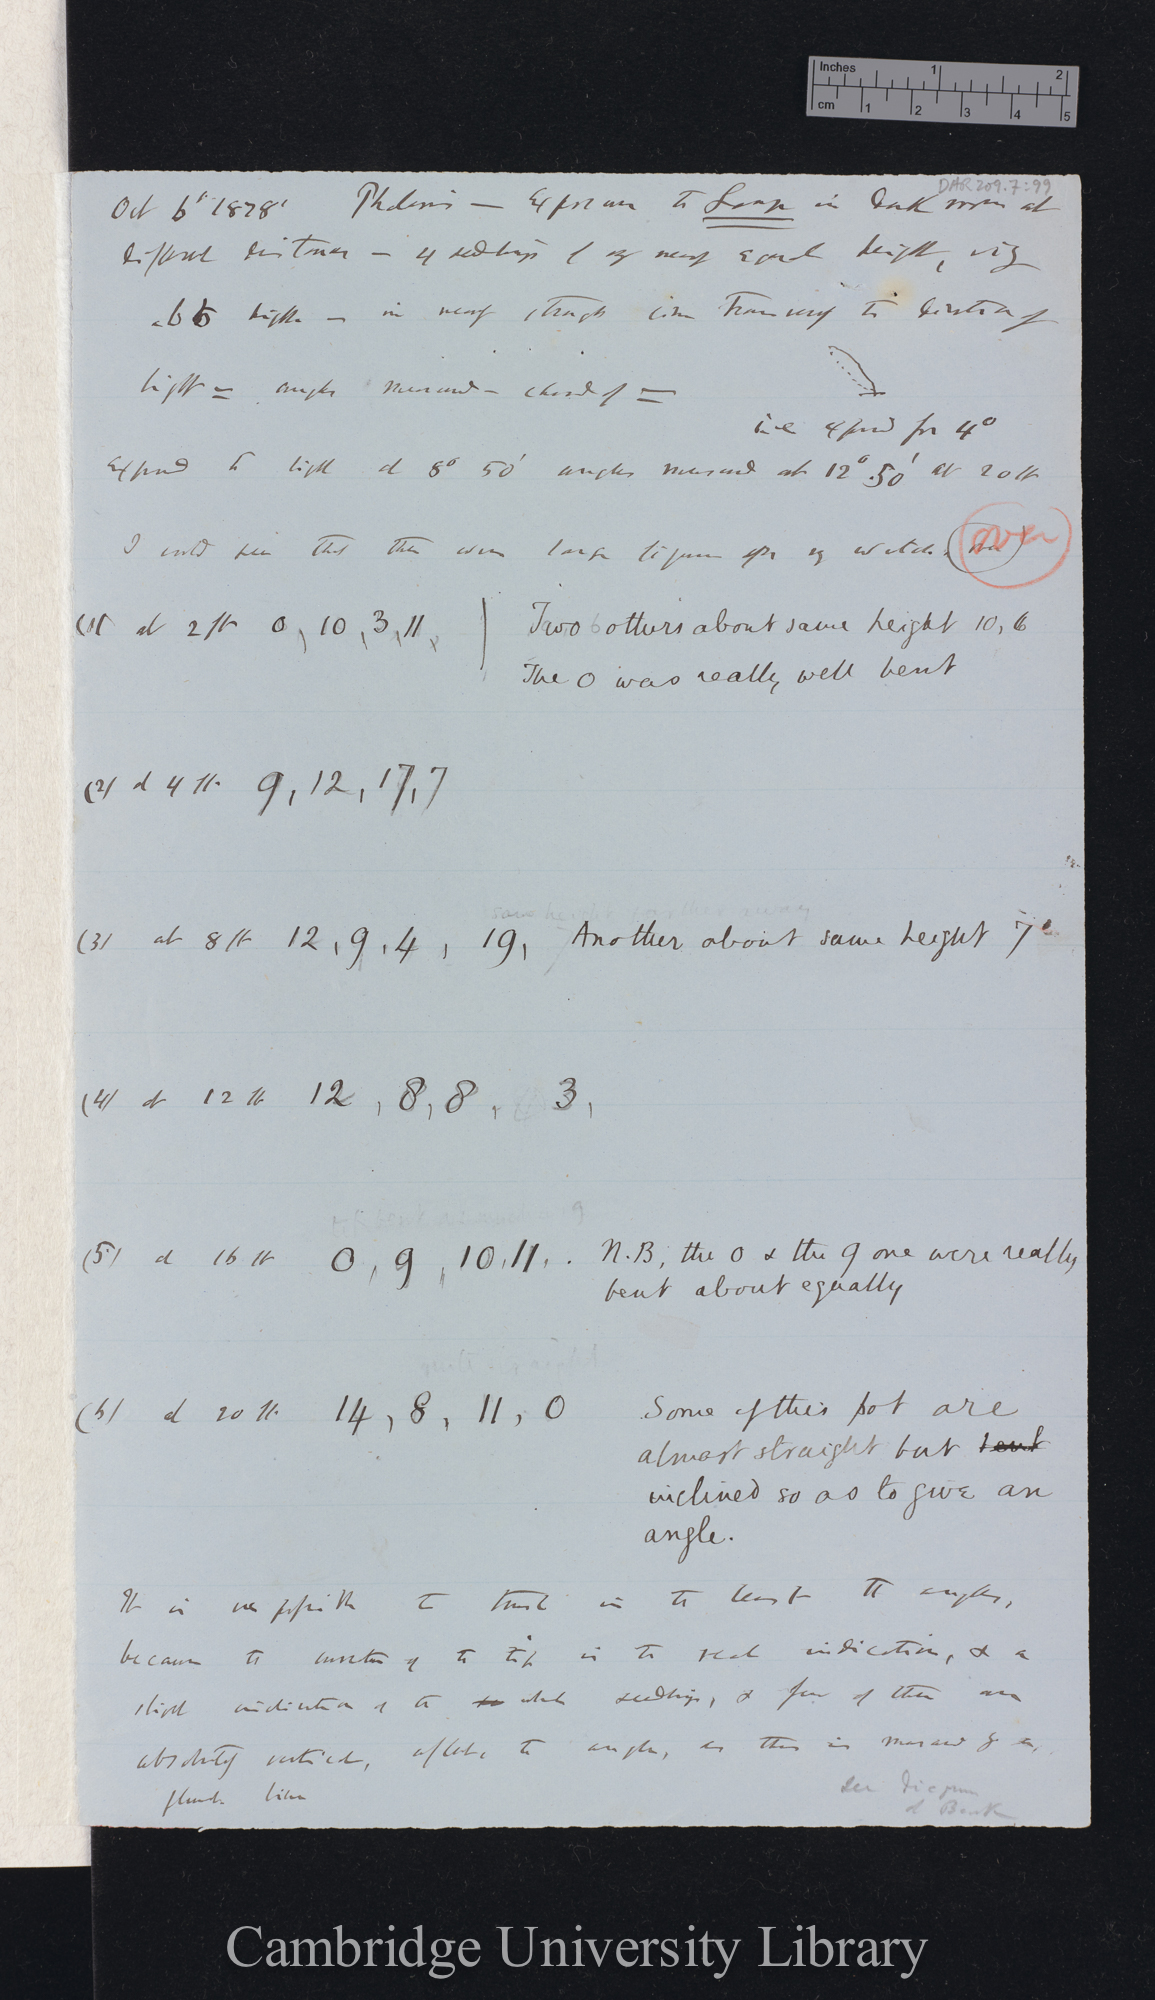 Inches 1 2
cm 1 2 3 4 5
DAR 209.7:99
Oct 6th 1878 Phalaris — Exposure to Lamp in dark room at
different distances — 4 seedlings of very nearly equal height, viz
in nearly straight line transversely to direction of
light = angles measured — chord of =
i.e. exposed for 4°
Exposed to light at 8° 50' angles measured at 12° 50' at 20 ft
I could see that there were large
over
(1) at 2 ft 0, 10, 3, 11, Two others about same height 10, 6
The 0 was really well bent
(2) at 4 ft 9, 12, 17, 7
same height further away
(3) at 8 ft 12, 9, 4, 19, Another about same height 7
(4) at 12 ft 12, 8, 8, 3,
(5) at 16 ft 0, 9, 10, 11, . N.B; the 0 & the 9 one were really
bent about equally
(6) at 20 ft 14, 8, 11, 0 Some of this pot are
almost straight but bent
inclined so as to give an
angle.
It is impossible to trust in the least to angles,
because the curvature of the tip is the real indication, & a
slight inclination of the whole seedlings, & few of them are
absolutely vertical, affects the angle, as this is measured by a
plumb line
See Diagram
at Back
Cambridge University Library